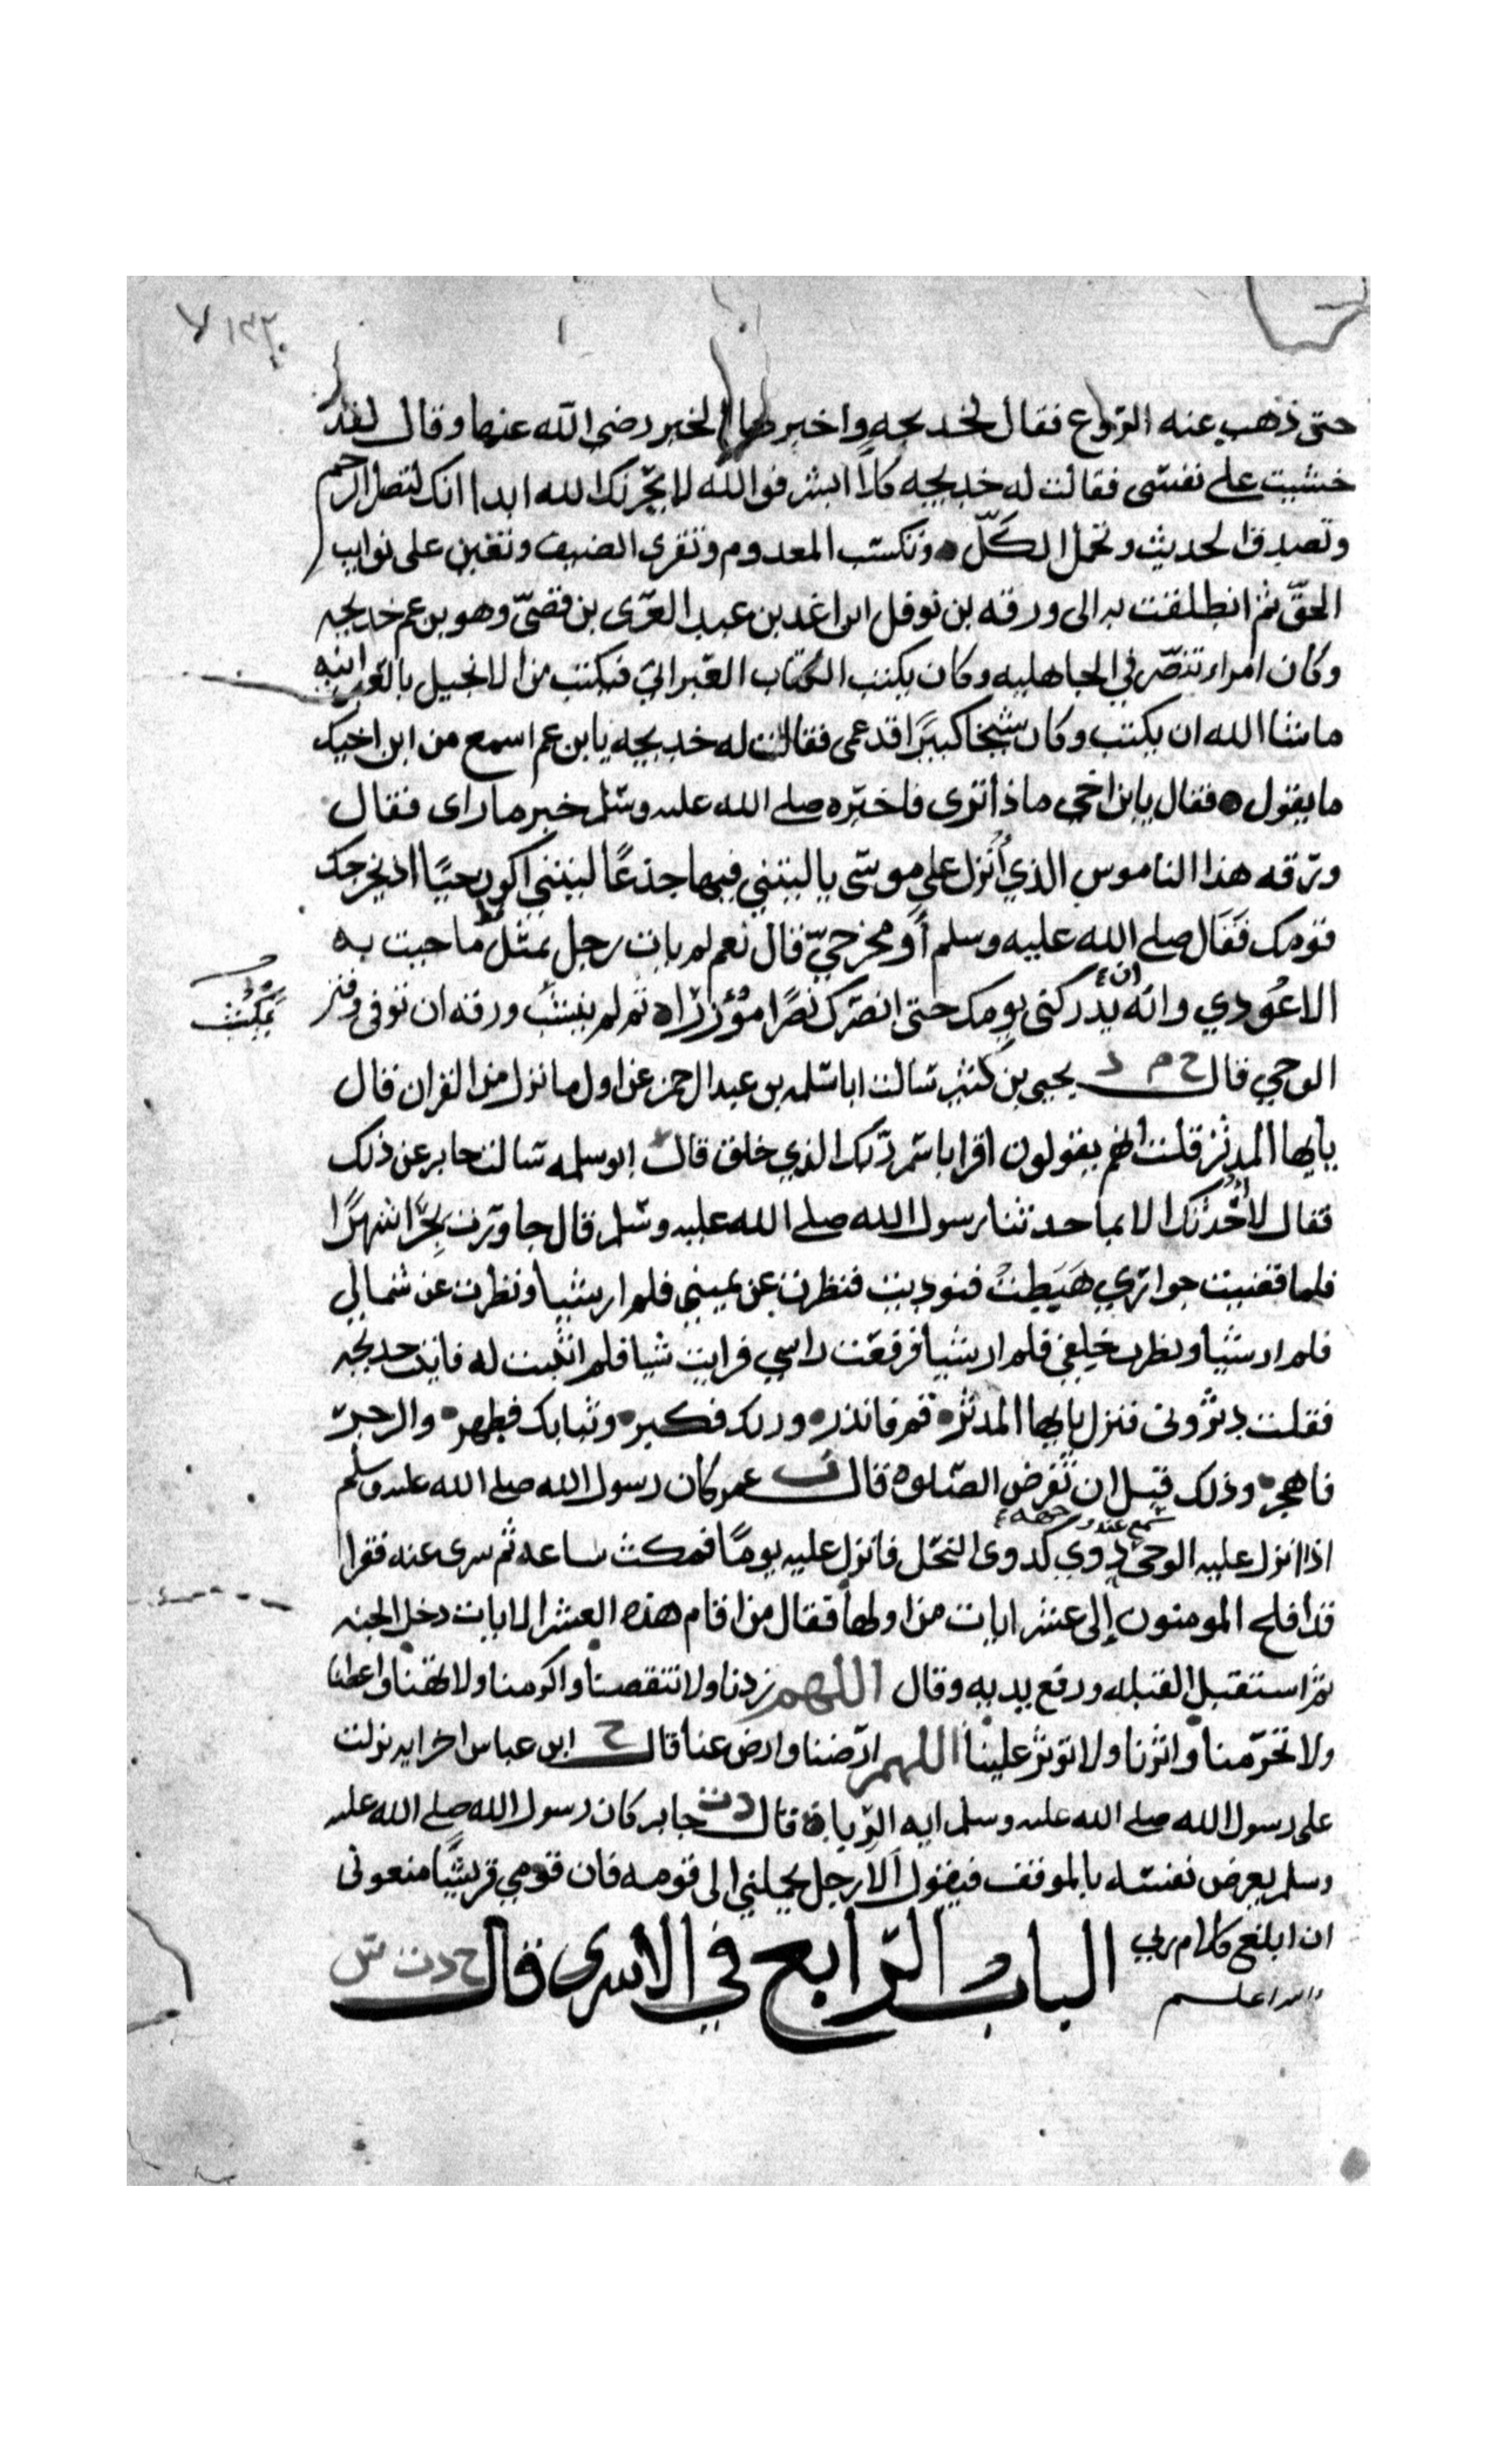 ١٣٢
حتى ذهب عنه الروع فقال لخديجه واخبرها الخبر رضى الله عنها وقال لقد
خشيت على نفسى فقالت له خديجه كلا ابشر فوالله لا يخزيك الله ابدا انك لتصل الرحم
وتصدق الحديث وتحمل الكلّ وتكسب المعدوم وتقرى الضيف وتعين على نوايب
الحقّ ثم انطلقت به الى ورقه بن نوفل بن عبد العزى بن قصىّ وهو بن عم خديجه
وكان امراء تنصّر في الجاهليه وكان يكتب الكتاب العبراني فيكتب من الانجيل بالعبرانيه
ما شا الله ان يكتب وكان شيخا كبيرًا قد عمى فقالت له خديجه يا بن عم اسمع من ابن اخيك
ما يقول فقال يابن اخي ماذا ترى فاخبره صلى الله عليه وسلم خبر ما راى فقال
ورقه هذا الناموس الذي أُنزل على موسى يا ليتني فيها جذعًا ليتني اكون حيًا اذ يخرجك
قومك فَقَال صلى الله عليه وسلم أَو مخرجيّ قال نعم لم يات رجل بمثل ما جيت به
الا عُودي وان يدركنى يومك حتى انصرك نصرًا مؤزرًا ثم لم ينشب ورقه ان توفى وفتر
يمكث
الوحي قال خ م د يحيى بن كثير سالت ابا سلمه بن عبد الرحمن عن اول ما نزل من القران قال
يايها المدثر قلت انهم يقولون اقرا باسم ربك الذي خلق قال ابو سلمه سالت جابر عن ذلك
فقال لا أُحدثك الا بما حدثنا رسول الله صلى الله عليه وسلم قال جاورت بحِرَا شهرًا
فلما قضيت جواري هَبَطتُ فنوديت فنظرت عن يميني فلم ار شيا ونظرت عن شمالي
فلم ار شيا ونظرت خلفي فلم ار شيا فرفعت راسي فرايت شيا فلم اثبت له فاتيت خديجه
فقلت دثرونى فنزل يايها المدثر قم فانذر وربك فكبر وثيابك فطهر والرجز
فاهجر وذلك قبل ان تفرض الصلوه قال ت عمر كان رسول الله صلى الله عليه وسلم
سمع عند وجهه
اذا انزل عليه الوحي دوي كدوى النحل فانزل عليه يومًا فمكث ساعه ثم سرى عنه فقرا
قد افلح المومنون إلى عشر ايات من اولها فقال من اقام هذه العشر الايات دخل الجنه
ثم استقبل القبله ورفع يديه وقال اللهم زدنا ولا تنقصنا واكرمنا ولا تهنا واعطنا
ولا تحرمنا واثرنا ولا توثر علينا اللهم ارضنا وارض عنا قال خ ابن عباس اخر ايه نزلت
على رسول الله صلى الله عليه وسلم ايه الربا قال د ت جابر كان رسول الله صلى الله عليه
وسلم يعرض نفسه بالموقف فيقول ألا رجل يحملني الى قومه فان قومي قريشًا منعونى
ان ابلغ كلام ربي
والله اعلم
الباب الرابع في الاسرى قال خ د ت س